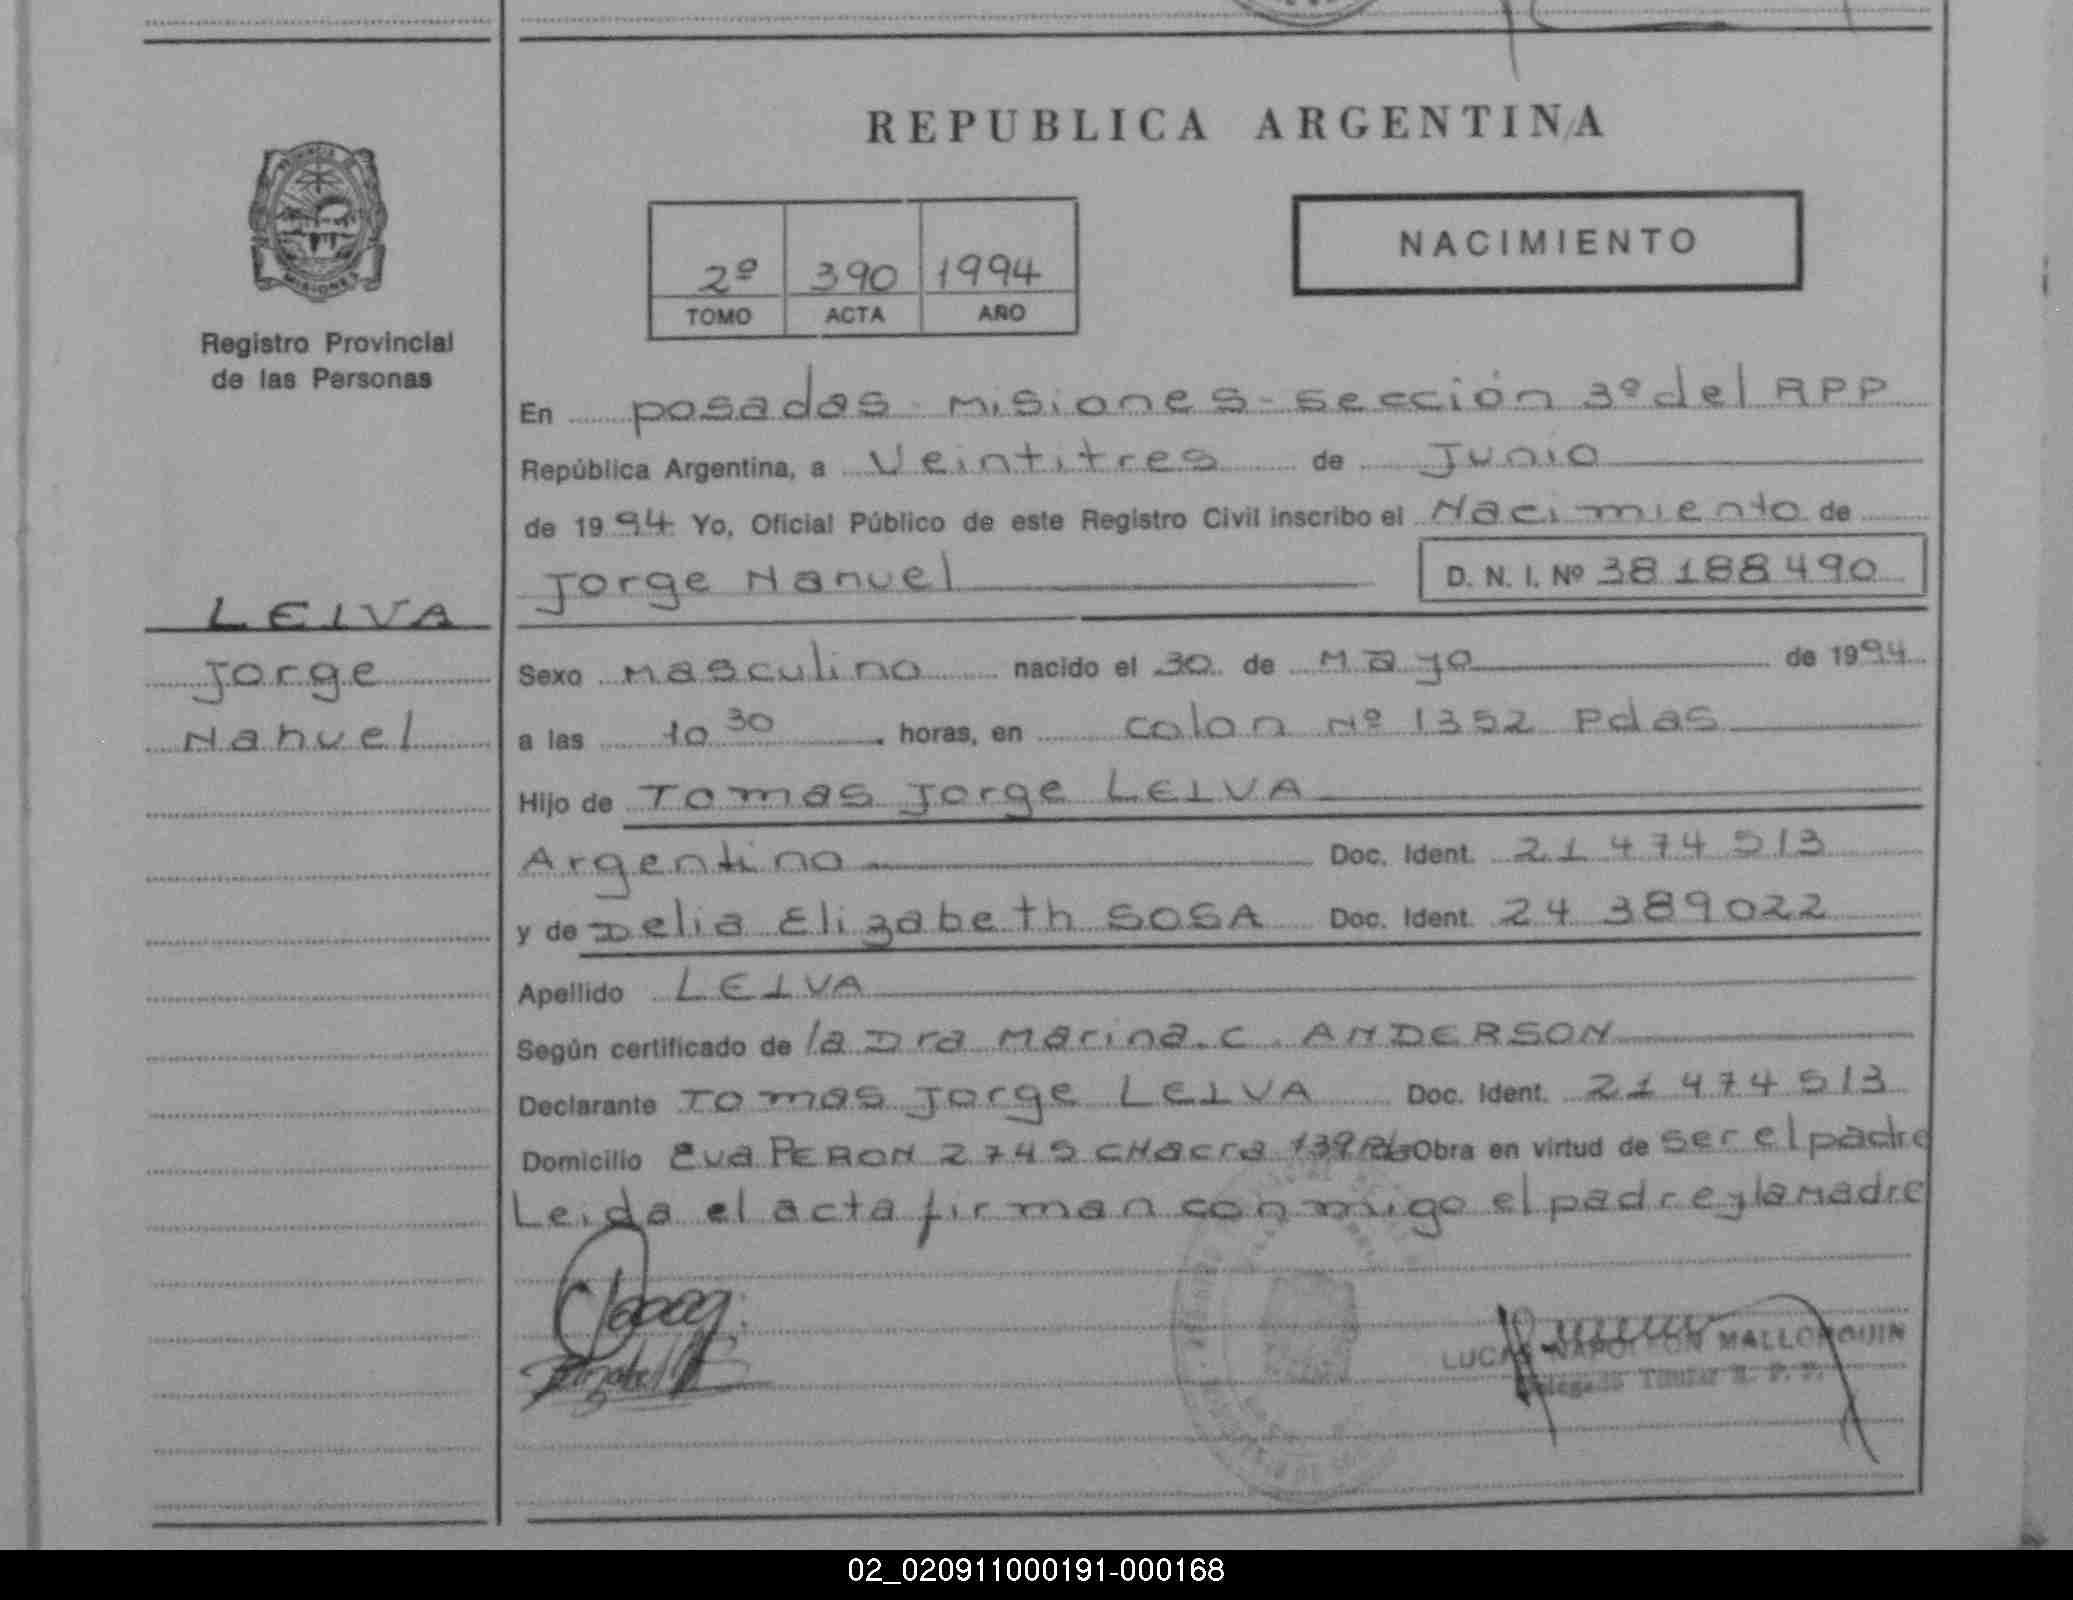 REPUBLICA ARGENTINA
NACIMIENTO
2º 390 1994
TOMO ACTA AÑO
MISIONES
Registro Provincial
de las Personas
En posadas - Misiones - sección 3º del RPP
República Argentina, a Veintitres de Junio
de 1994 Yo, Oficial Público de este Registro Civil inscribo el Nacimiento de
Jorge Nahuel D. N. I. Nº 38 188 490
LEIVA
Jorge
Nahuel
Sexo Masculino nacido el 30 de Mayo de 1994
a las 10 30 horas, en colon Nº 1352 Pdas
Hijo de Tomas Jorge LEIVA
Argentino Doc. Ident. 21 474 513
y de Delia Elizabeth SOSA Doc. Ident. 24 389022
Apellido LEIVA
Según certificado de la Dra Marina. C. ANDERSON
Declarante Tomas Jorge LEIVA Doc. Ident. 21 474 513
Domicilio Eva PERON 2745 CHacra 139 Obra en virtud de ser el padre
Leida el acta firman conmigo el padre y la Madre
LUCAS NAPOLEON MALLORQUIN
Delegado Titular R. P. P.
02_020911000191-000168